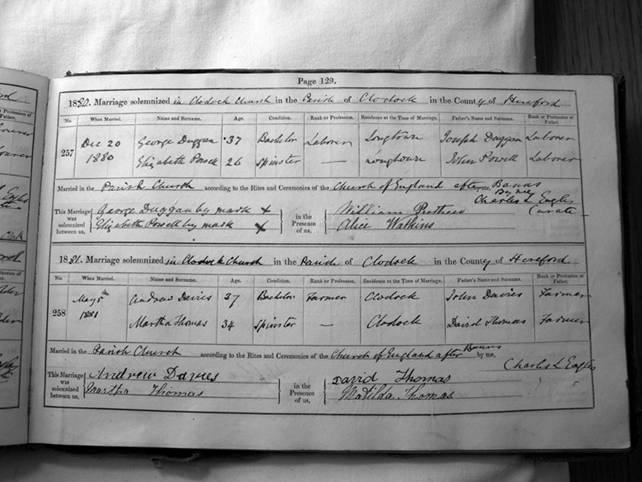 Page 129.
1880. Marriage solemnized in Clodock Church in the Parish of Clodock in the County of Hereford
No. When Married. Name and Surname. Age. Condition. Rank or Profession. Residence at the Time of Marriage. Father's Name and Surname. Rank or Profession of Father.
257 Dec 20 George Duggan 37 Bachelor Laborer Longtown Joseph Duggan Laborer
1880 Elizabeth Powell 26 Spinster — Longtown John Powell Laborer
Married in the Parish Church according to the Rites and Ceremonies of the Church of England after Banns
by me,
Charles L Eagles
Curate
This Marriage was solemnized between us, George Duggan by mark X in the Presence of us, William Prothero
Elizabeth Powell by mark X Alice Watkins
1881. Marriage solemnized in Clodock Church in the Parish of Clodock in the County of Hereford
No. When Married. Name and Surname. Age. Condition. Rank or Profession. Residence at the Time of Marriage. Father's Name and Surname. Rank or Profession of Father.
258 May 5 Andrew Davies 27 Bachelor Farmer Clodock John Davies Farmer
1881 Martha Thomas 34 Spinster — Clodock David Thomas Farmer
Married in the Parish Church according to the Rites and Ceremonies of the Church of England after Banns by me,
Charles L Eagles
This Marriage was solemnized between us, Andrew Davies in the Presence of us, David Thomas
Martha Thomas Matilda Thomas